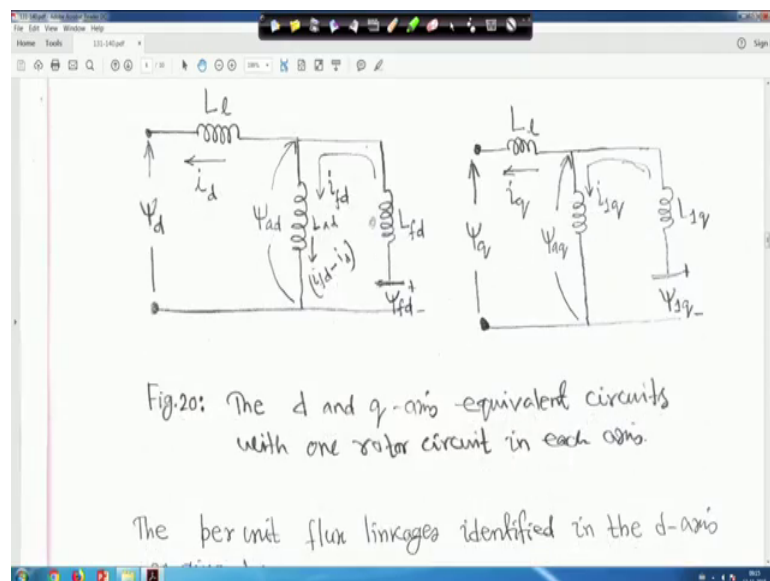 131-140.pdf - Adobe Acrobat Reader DC
File Edit View Window Help
Home Tools 131-140.pdf × Sign
Lℓ
i_d
Ψ_d
Ψ_ad
L_ad
(i_fd-i_d)
i_fd
L_fd
+
Ψ_fd -
Lℓ
i_q
Ψ_q
Ψ_aq
i_1q
L_1q
+
Ψ_1q -
Fig.20: The d and q-axis equivalent circuits
with one rotor circuit in each axis.
The per unit flux linkages identified in the d-axis